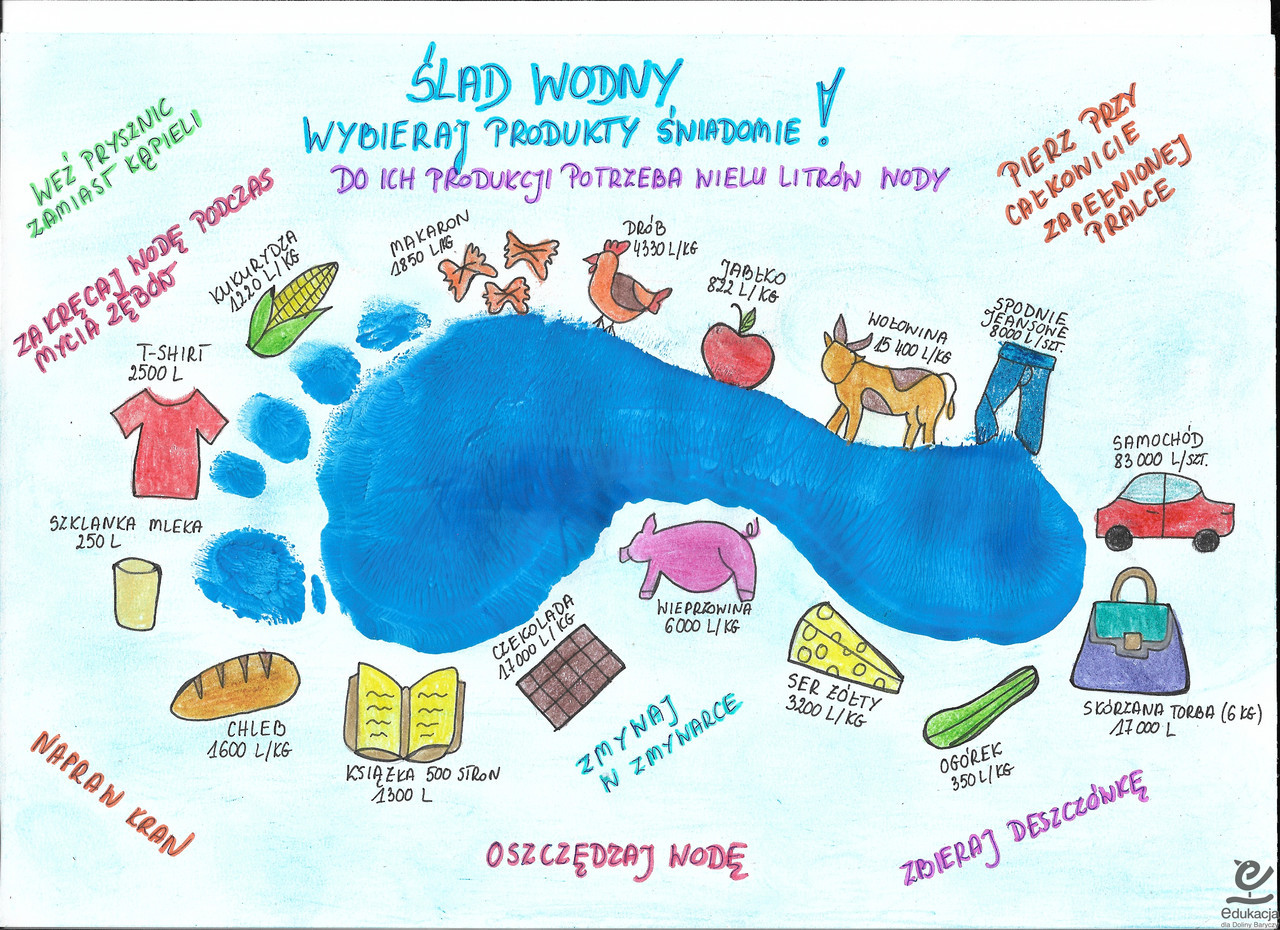 ŚLAD WODNY
WYBIERAJ PRODUKTY ŚWIADOMIE!
DO ICH PRODUKCJI POTRZEBA WIELU LITRÓW WODY
WEŹ PRYSZNIC
ZAMIAST KĄPIELI
ZAKRĘCAJ WODĘ PODCZAS
MYCIA ZĘBÓW
PIERZ PRZY
CAŁKOWICIE
ZAPEŁNIONEJ
PRALCE
KUKURYDZA
1220 L/KG
MAKARON
1850 L/KG
DRÓB
4330 L/KG
JABŁKO
822 L/KG
WOŁOWINA
15 400 L/KG
SPODNIE
JEANSOWE
8000 L/SZT.
T-SHIRT
2500 L
SAMOCHÓD
83 000 L/SZT.
SZKLANKA MLEKA
250 L
WIEPRZOWINA
6000 L/KG
CZEKOLADA
17000 L/KG
SER ŻÓŁTY
3200 L/KG
SKÓRZANA TORBA (6 KG)
17000 L
CHLEB
1600 L/KG
KSIĄŻKA 500 STRON
1300 L
OGÓREK
350 L/KG
ZMYWAJ
W ZMYWARCE
NAPRAW KRAN
OSZCZĘDZAJ WODĘ
ZBIERAJ DESZCZÓWKĘ
edukacja
dla Doliny Baryczy